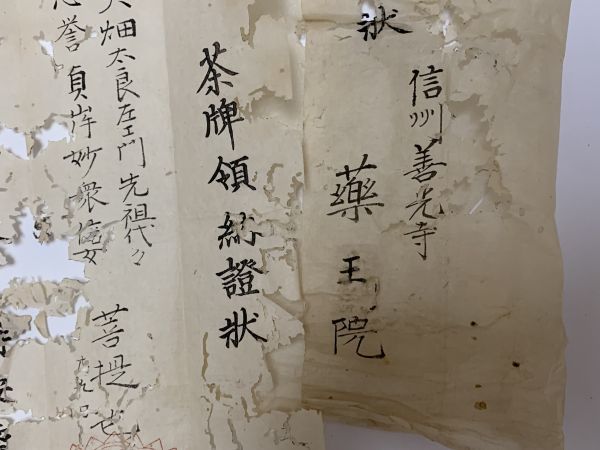 状
信州善光寺
藥王院
茶牌領納證狀
畑太良左エ門先祖代々
誉貞岸妙衆信女
菩提